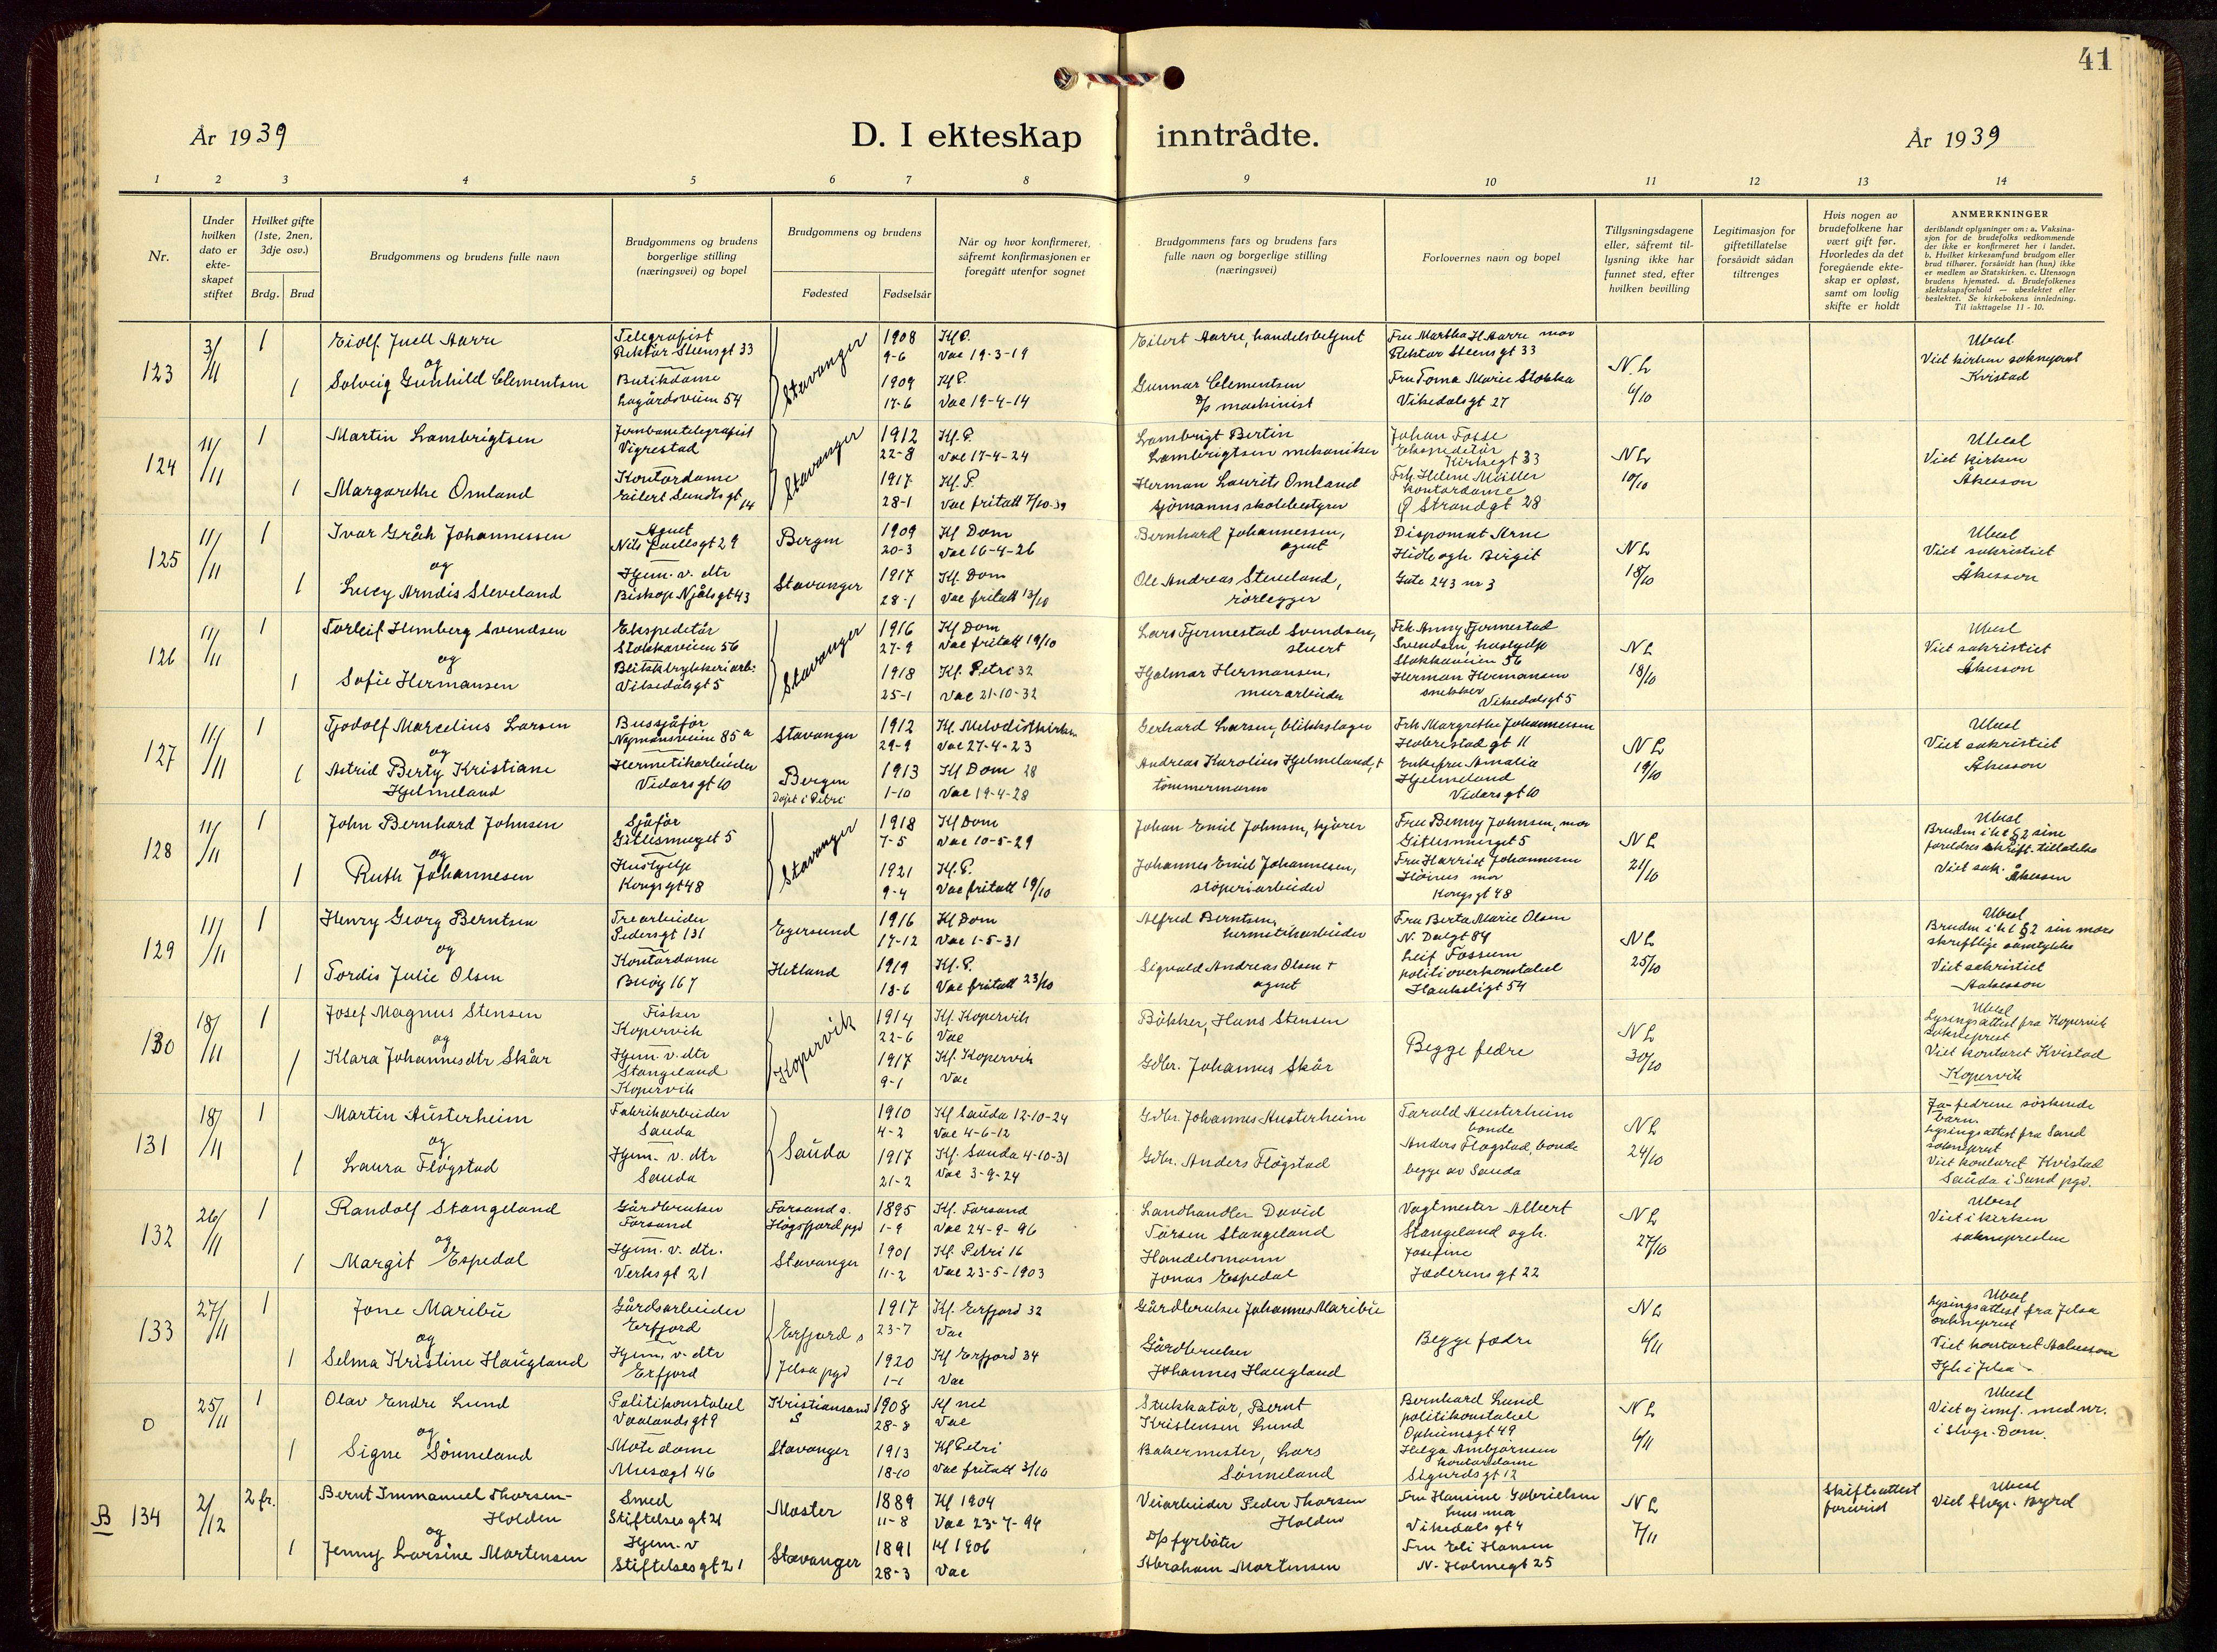 41
År 1939
D. I ekteskap inntrådte.
År 1939
1 2 3 4 5 6 7 8 9 10 11 12 13 14
Nr.
Under hvilken dato er ekteskapet stiftet
Hvilket gifte (1ste, 2nen, 3dje osv.)
Brdg. Brud
Brudgommens og brudens fulle navn
Brudgommens og brudens borgerlige stilling (næringsvei) og bopel
Brudgommens og brudens
Fødested Fødselsår
Når og hvor konfirmeret, såfremt konfirmasjonen er foregått utenfor sognet
Brudgommens fars og brudens fars fulle navn og borgerlige stilling (næringsvei)
Forlovernes navn og bopel
Tillysningsdagene eller, såfremt tillysning ikke har funnet sted, efter hvilken bevilling
Legitimasjon for giftetillatelse forsåvidt sådan tiltrenges
Hvis nogen av brudefolkene har vært gift før. Hvorledes da det foregående ekteskap er opløst, samt om lovlig skifte er holdt
ANMERKNINGER
deriblandt oplysninger om: a. Vaksinasjon for de brudefolks vedkommende der ikke er konfirmeret her i landet. b. Hvilket kirkesamfund brudgom eller brud tilhører, forsåvidt han (hun) ikke er medlem av Statskirken. c. Utensogn brudens hjemsted. d. Brudefolkenes slektskapsforhold — ubeslektet eller beslektet. Se kirkebokens innledning. Til iakttagelse 11 - 10.
123 3/11 1 Eiolf Juell Aarre Telegrafist Stavanger 1908 Kf P. Eilert Aarre, handelsbetjent Fru Martha H Aarre mor Ubesl
og Rektor Steensgt 33 9-6 Vac 19-3-19 Rektor Steensgt 33 N.L Viet kirken sokneprest
1 Solveig Gunhild Clementsen Butikdame 1909 Kf P. Gunnar Clementsen Fru Toma Marie Stokka 6/10 Kvistad
Lagårdsveien 54 17-6 Vac 19-4-14 D/s maskinist Vikedalsgt 27
124 11/11 1 Martin Lambrigtsen Jernbanetelegrafist Stavanger 1912 Kf. P. Lambrigt Bertin Johan Fosse Ubesl
Vigrestad 22-8 Vac 17-4-24 Lambrigtsen mekaniker Ekspeditør Kirkegt 33 NL Viet kirken
1 Margarethe Omland Kontordame 1917 Kf. P Herman Laurits Omland Frk. Helene Müller 10/10 Åkesson
Eilert Sundtsgt 14 28-1 Vac fritatt 7/10-39 sjømannsskolebestyrer kontordame Ø Strandgt 28
125 11/11 1 Ivar Gråh Johannessen Agent Bergen 1909 Kf Dom Bernhard Johannessen, Disponent Arne Ubesl
og Nils Juelsgt 29 20-3 Vac 16-4-26 agent Hidle ogh. Birgit NL Viet sakristiet
1 Lucy Arndis Steveland Hjem. v. dtr Stavanger 1917 Kf. Dom Ole Andreas Steveland, Gate 243 nr 3 18/10 Åkesson
Biskop Njålsgt 43 28-1 Vac fritatt 13/10 rørlegger
126 11/11 1 Torleif Hemberg Svendsen Ekspeditør Stavanger 1916 Kf Dom Lars Fjermestad Svendsen, Frk. Anny Fjermestad Ubesl
og Stokkaveien 56 27-9 Vac fritatt 19/10 stuert Svendsen, hushjelp NL Viet sakristiet
1 Sofie Hermansen Blikktrykkeriarb. 1918 Kf. Petri 32 Hjalmar Hermansen, Stokkaveien 56 18/10 Åkesson
Vikedalsgt 5 25-1 Vac 21-10-32 murarbeider Herman Hermansen snekker Vikedalsgt 5
127 11/11 1 Tjodolf Marcelius Larsen Bussjåfør Stavanger 1912 Kf. Metodistkirken Gerhard Larsen, blikkslager Frk Margrethe Johannessen Ubesl
og Nymansveien 85 a 29-9 Vac 27-4-23 Haabrestad gt 11 NL Viet sakristiet
1 Astrid Berty Kristiane Hermetikarbeider Bergen 1913 Kf Dom 28 Andreas Karolius Hjelmeland, + Enkefru Amalia 19/10 Åkesson
Hjelmeland Vidarsgt 10 Døpt i Petri 1-10 Vac 19-4-28 tømmermann Hjelmeland Vidarsgt 10
128 11/11 1 John Bernhard Johnsen Sjåfør Stavanger 1918 Kf Dom Johan Emil Johnsen, kjører Fru Benny Johnsen, mor Ubesl
og Gitlesmuget 5 7-5 Vac 10-5-29 Gitlesmuget 5 NL Bruden iht § 2 sine
1 Ruth Johannesen Hushjelp 1921 Kf. P. Johannes Emil Johannesen, Fru Harriet Johannesen 21/10 foreldres skrift. tillatelse
Kongsgt 48 9-4 Vac fritatt 19/10 støperiarbeider mor Kongsgt 48 Viet sak. Åkesson
129 11/11 1 Henry Georg Berntsen Trearbeider Egersund 1916 Kf Dom Alfred Berntsen, Fru Berta Marie Olsen Ubesl
og Pedersgt 131 17-12 Vac 1-5-31 hermetikarbeider N. Dalgt 84 NL Bruden iht § 2 sin mors
1 Tordis Julie Olsen Kontordame Hetland 1919 Kf. P. Sigvald Andreas Olsen + Leif Fossum 25/10 skriftlige samtykke
Buøy 167 18-6 Vac fritatt 23/10 agent politioverkonstabel Haukeligt 54 Viet sakristiet Aakesson
130 18/11 1 Josef Magnus Stensen Fisker Kopervik 1914 Kf. Kopervik Bøkker, Hans Stensen Begge fedre NL Ubesl
og Kopervik 22-6 Vac 30/10 Lysingsattest fra Kopervik sokneprest
1 Klara Johannesdtr Skår Hjem. v. dtr 1917 Kf. Kopervik Gdbr. Johannes Skår Viet kontoret Kvistad
Stangeland Kopervik 9-1 Vac Kopervik
131 18/11 1 Martin Austerheim Fabrikarbeider Sauda 1910 Kf Sauda 12-10-24 Gdbr. Johannes Austerheim Tarald Austerheim NL Ja - fedrene søskende barn.
og Sauda 4-2 Vac 4-6-12 bonde 24/10 Lysingsattest fra Sand sokneprest
1 Laura Fløgstad Hjem. v. dtr 1917 Kf. Sauda 4-10-31 Gdbr. Anders Fløgstad Anders Fløgstad, bonde Viet kontoret Kvistad
Sauda 21-2 Vac 3-9-24 begge av Sauda Sauda i Sand pgd.
132 26/11 1 Randolf Stangeland Gårdbruker Forsand s. 1895 Kf. Forsand Landhandler David Vagtmester Albert NL Ubesl
og Forsand Høgsfjord pgd 1-9 Vac 24-9-96 Tørsen Stangeland Stangeland ogh. 27/10 Viet i kirken
1 Margit Espedal Hjem. v. dtr. Stavanger 1901 Kf. Petri 16 Handelsmann Josefine soknepresten
Verksgt 21 11-2 Vac 23-5-1903 Jonas Espedal Jæderensgt 22
133 27/11 1 Jone Maribu Gårdsarbeider Erfjord s 1917 Kf. Erfjord 32 Gårdbruker Johannes Maribu Begge fedre NL Ubesl
og Erfjord Jelsa pgd 23-7 Vac 6/11 Lysingsattest fra Jelsa sokneprest
1 Selma Kristine Haugland Hjem. v. dtr 1920 Kf Erfjord 34 Gårdbruker Viet kontoret Aakesson
Erfjord 1-1 Vac Johannes Haugland
0 25/11 1 Olav Endre Lund Politikonstabel Kristiansand S 1908 Kf nei Stukkatør, Bernt Bernhard Lund NL Ubesl
og Vaalandsgt 9 28-8 Vac Kristensen Lund politikonstabel 6/11 Viet og innf. med nr.
1 Signe Sønneland Motedame Stavanger 1913 Kf Petri Bakermester, Lars Opheimsgt 49 i Stvgr. Dom.
Musegt 46 18-10 Vac fritatt 3/10 Sønneland Helga Ambjørnsen kontordame Sigurdsgt 12
B 134 2/12 2 fr. Bernt Immanuel Thorsen- Smed Moster 1889 Kf 1904 Veiarbeider Peder Thorsen Fru Hansine Gabrielsen NL Skifteattest Ubesl
Holden Stiftelsesgt 21 11-8 Vac 23-7-94 Holden Vikedalsgt 4 7/11 forevist Viet Stvgr. Byrd
og
1 Jenny Larsine Martensen Hjem. v Stavanger 1891 Kf 1906 D/s fyrbøter Fru Eli Hansen
Stiftelsesgt 21 28-3 Vac Abraham Martensen N. Holmegt 25